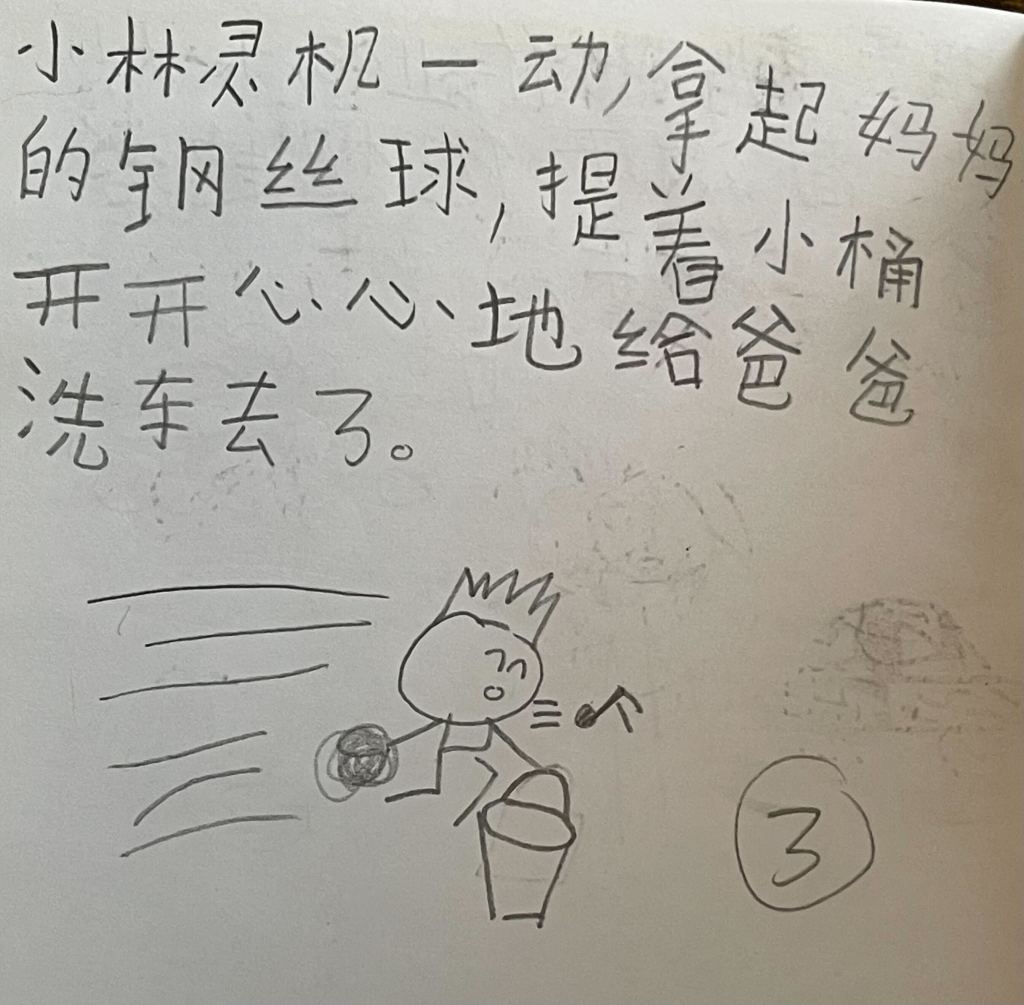 小林灵机一动,拿起妈妈
的钢丝球,提着小桶
开开心心地给爸爸
洗车去了。
3